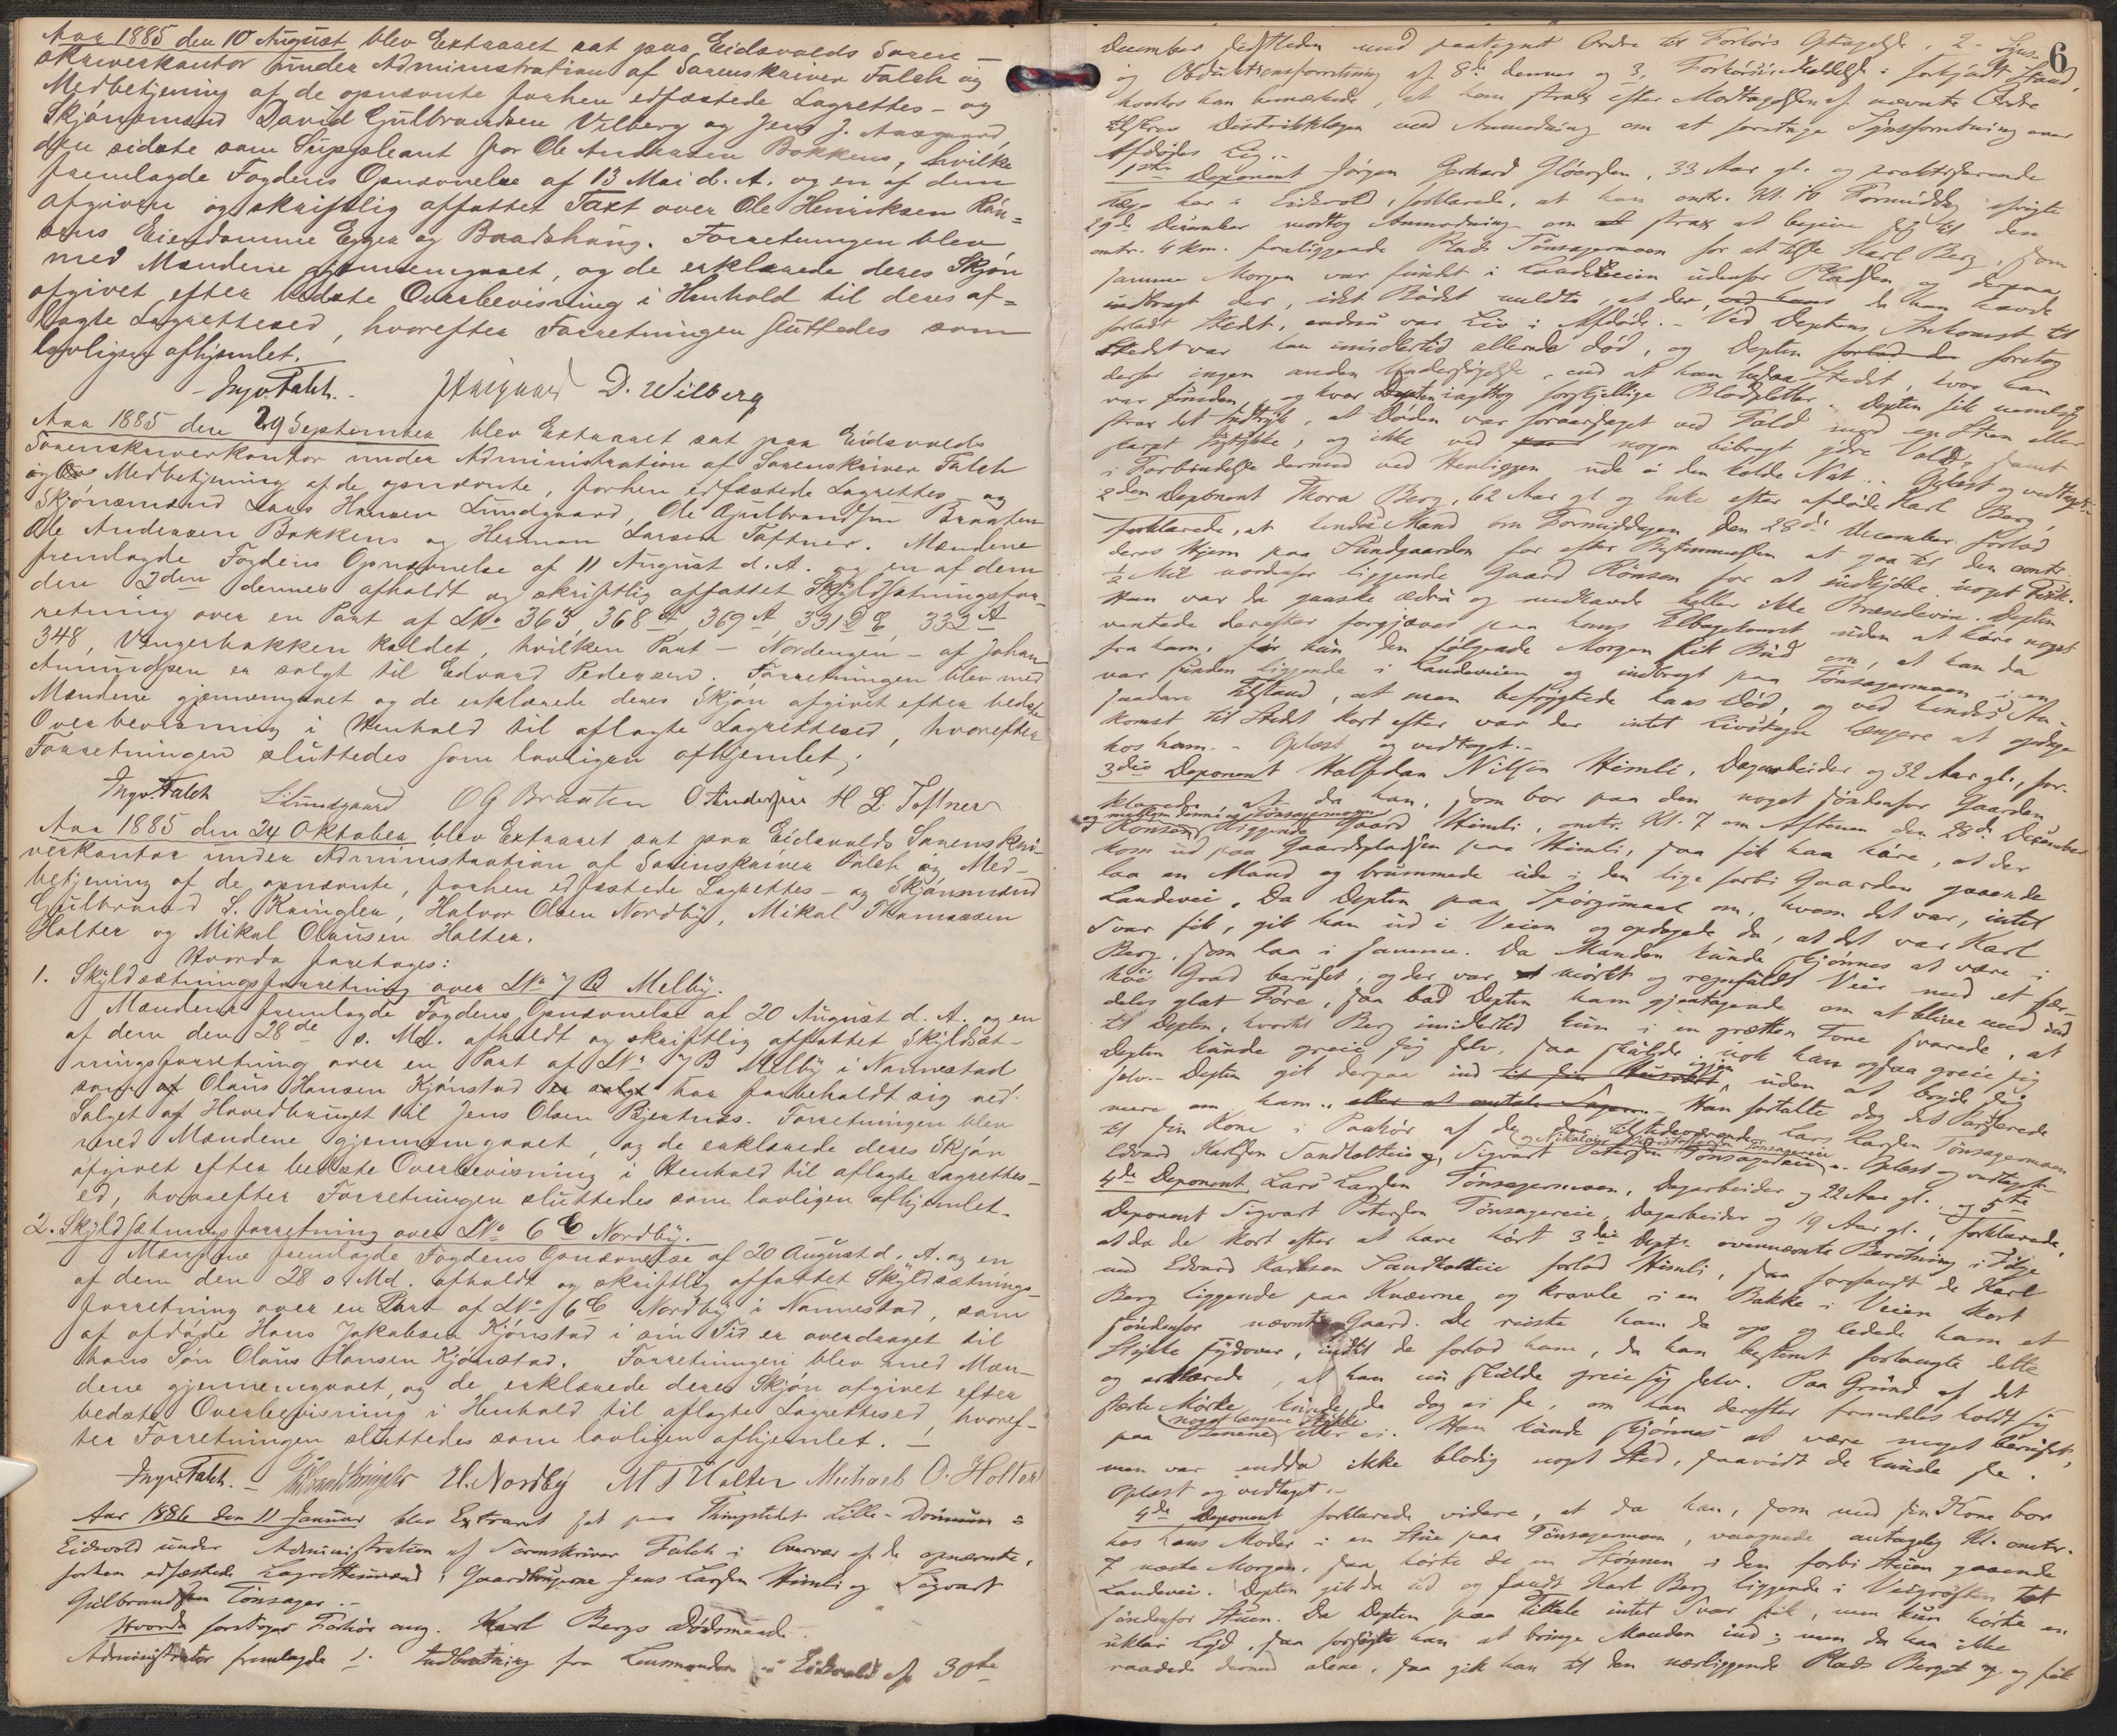 Aar 1885 den 10 August blev Extraret sat paa Eidsvolds Soren-
skriverkontor under Administration af Sorenskriver Falch og
Medbetjening af de opnævnte forhen edfæstede Lagrettes- og
Skjönsmænd David Gulbrandsen Vilberg og Jens J. Aasgaard,
den sidste som Suppleant for Ole Andersen Bakkens, hvilke
fremlagde Fogdens Opnævnelse af 13 Mai d. A. og en af dem
afgiven og skriftlig affattet Taxt over Ole Henriksen Rön-
sens Eiendomme Egger og Baadshaug. Forretningen blev
med Mændene gjennemgaaet, og de erklærede deres Skjön
afgivet efter bedste Overbevisning i Henhold til deres af-
lagte Lagrettesed, hvorefter Forretningen sluttedes som
lovligen afhjemlet.
Ingv. Falch. JAasgaard D. Wilberg
Aar 1885 den 29 September blev Extraret sat paa Eidsvolds
Sorenskriverkontor under Administration af Sorenskriver Falch
og Medbetjening af de opnævnte, forhen edfæstede Lagrettes- og
Skjönsmænd Lars Hansen Lundgaard, Ole Gulbrandsen Braaten
Ole Andersen Bakkens og Herman Larsen Toftner. Mændene
fremlagde Fogdens Opnævnelse af 11 August d. A. og en af dem
den 2den dennes afholdt og skriftlig affattet Skyldsætningsfor-
retning over en Part af LNo 363, 368 A, 369 A, 331 D E, 332 A
348, Vengerbakken kaldet, hvilken Part - Nordengen - af Johan
Amundsen er solgt til Edvard Pedersen. Forretningen blev med
Mændene gjennemgaaet og de erklærede deres Skjön afgivet efter bedste
Overbevisning i Henhold til aflagte Lagrettesed, hvorefter
Forretningen sluttedes som lovligen afhjemlet.
Ingv. Falch LLundgaard OG Braaten O Andersen H L Toftner
Aar 1885 den 24 Oktober blev Extraret sat paa Eidsvolds Sorenskri-
verkontor under Administration af Sorenskriver Falch og Med-
betjening af de opnævnte, forhen edfæstede Lagrettes- og Skjönsmænd
Gulbrand L. Kringler, Halvor Olsen Nordby, Mikal Thomassen
Holter og Mikal Olausen Holter.
Hvorda foretoges:
1. Skyldsætningsforretning over LNo 7 B Melby.
Mændene fremlagde Fogdens Opnævnelse af 20 August d. A. og en
af dem den 28de s. Md. afholdt og skriftlig affattet Skyldsæt-
ningsforretning over en Part af LNo 7 B Melby i Nannestad
som af Olaus Hansen Kjönstad er solgt har forbeholdt sig ved
Salget af Hovedbruget til Jens Olsen Bjertnæs. Forretningen blev
med Mændene gjennemgaaet, og de erklærede deres Skjön
afgivet efter bedste Overbevisning i Henhold til aflagte Lagrettes-
ed, hvorefter Forretningen sluttedes som lovligen afhjemlet.
2. Skyldsætningsforretning over LNo 6 C Nordby.
Mændene fremlagde Fogdens Opnævnelse af 20 August d. A. og en
af dem den 28 s. Md. afholdt og skriftlig affattet Skyldsætnings-
forretning over en Part af LNo 6 C Nordby i Nannestad, som
af afdöde Hans Jakobsen Kjönstad i sin Tid er overdraget til
hans Sön Olaus Hansen Kjönstad. Forretningen blev med Mæn-
dene gjennemgaaet, og de erklærede deres Skjön afgivet efter
bedste Overbevisning i Henhold til aflagte Lagrettesed, hvoref-
ter Forretningen sluttedes som lovligen afhjemlet. -
Ingv. Falch. - H. Nordby M T Holter Michael O. Holter
Aar 1886 den 11 Januar blev Extraret sat paa Thingstedet Lille-Dönnum i
Eidsvold under Administration af Sorenskriver Falch i Overvær af de opnævnte,
forhen edfæstede Lagrettesmænd, Gaardbrugerne Jens Larsen Himli og Sigvart
Gulbrandsen Tönsager. -
Hvorda foretoges Forhör ang. Karl Bergs Dödsmaade.
Administrator fremlagde 1. Indberetning fra Lensmanden i Eidsvold af 30te
6
December sidstleden med paategnet Ordre til Forhörs Optagelse, 2- Syns-
og Obduktionsforretning af 8de dennes og 3, Forhörsindkaldelse i forkyndt Stand,
hvorhos han bemærkede, at han strax efter Modtagelsen af nævnte Ordre
tilskrev Distriktslægen med Anmodning om at foretage Synsforretning over
Afdödes Lig. -
1ste Deponent Jörgen Gerhard Glöersen, 33 Aar gl. og praktiserende
Læge her i Eidsvold, forklarede, at han omtr. Kl. 10 Formiddag afvigte
29de December modtog Anmodning om at strax at begive sig til den
omtr. 4 km. fraliggende Plads Tönsagermoen for at tilse Karl Berg, som
samme Morgen var fundet i Landeveien udenfor Pladsen og derpaa
indbragt der, idet Budet meldte, at der, ved hans da han havde
forladt Stedet, endnu var Liv i Afdöde. - Ved Deptens Ankomst til
Stedet var han imidlertid allerede död, og Depten forlod den foretog
derfor ingen anden Undersögelse, end at han besaa Stedet, hvor han
var funden, og hvor Depten iagttog forskjellige Blodpletter. Depten fik nemlig
strax det Indtryk, at Döden var foraarsaget ved Fald mod en Sten eller
skarpt Isstykke, og ikke ved paa nogen bibragt ydre Vold, samt
i Forbindelse dermed ved Henliggen ude i den kolde Nat. - Oplæst og vedtaget. -
2den Deponent Thora Berg, 62 Aar gl. og Enke efter afdöde Karl Berg,
forklarede, at hendes Mand om Formiddagen den 28de December forlod
deres Hjem paa Sundgaarden for efter Bestemmelsen at gaa til den omtr.
1/2 Mil nordenfor liggende Gaard Rönsen for at indkjöbe noget Fisk.
Han var da ganske ædru og medhavde heller ikke Brændevin. Depten
ventede derefter forgjæves paa hans Tilbagekomst uden at höre noget
fra ham, för hun den fölgende Morgen fik Bud om, at han da
var funden liggende i Landeveien og indbragt paa Tönsagermoen i en
saadan Tilstand, at man befrygtede hans Död, og ved hendes An-
komst til Stedet kort efter var der intet Livstegn længere at opdage
hos ham. - Oplæst og vedtaget. -
3die Deponent Halfdan Nilsen Himli, Dagarbeider og 32 Aar gl., for-
klarede, at da han, som bor paa den noget söndenfor Gaarden
og mellem denne og Tönsagermoen
Rönsen liggende Gaard Himli, omtr. Kl. 7 om Aftenen den 28de December
kom ud paa Gaardspladsen paa Himli, saa fik han höre, at der
laa en Mand og brummede ude i den lige forbi Gaarden gaaende
Landevei. Da Depten paa Spörgsmaal om, hvem det var, intet
Svar fik, gik han ud i Veien og opdagede da, at det var Karl
Berg, som laa i samme. Da Manden kunde skjönnes at være i
höi Grad beruset, og der var mörkt og regnfuldt Veir med et sær-
deles glat Före, saa bad Depten ham gjentagende om at blive med ind
til Depten, hvortil Berg imidlertid kun i en grætten Tone svarede, at
Depten kunde greie sig selv, saa skulde nok han ogsaa greie sig
selv. - Depten gik derpaa ind til sin igjen uden at bryde sig
mere om ham, eller at omtale Sagen. - Han fortalte dog det Passerede
til sin Kone i Paahör af de der tilstedeværende Lars Larsen Tönsagermoen
og Nikolai Tönsagereie
Edvard Karlsen Sandholteie og Sigvart Petersen Tönsagereie. - Oplæst og vedtaget. -
4de Deponent Lars Larsen Tönsagermoen, Dagarbeider og 22 Aar gl. og 5te
Deponent Sigvart Petersen Tönsagereie, Dagarbeider og 19 Aar gl., forklarede,
at da de kort efter at have hört 3die Depts. ovennævnte Beretning i Fölge
med Edvard Karlsen Sandholteie forlod Himli, saa forefandt de Karl
Berg liggende paa Knæerne og kravle i en Bakke i Veien kort
söndenfor nævnte Gaard. De reiste ham da op og ledede ham et
Stykke sydover, indtil de forlod ham, da han bestemt forlangte dette
og erklærede, at han nu skulde greie sig selv. Paa Grund af det
stærke Mörke kunde de dog ei se, om han derefter fremdeles holdt sig
noget længere Stykke
paa Benene eller ei. Han kunde skjönnes at være meget beruset,
men var endda ikke blodig noget Sted, saavidt de kunde se.
Oplæst og vedtaget. -
4de Deponent forklarede videre, at da han, som med sin Kone bor
hos hans Moder i en Stue paa Tönsagermoen, vaagnede antagelig Kl. omtr.
7 næste Morgen, saa hörte de en Stönnen i den forbi Stuen gaaende
Landevei. Depten gik da ud og fandt Karl Berg liggende i Veigröften tæt
söndenfor Stuen. Da Depten paa Tiltale intet Svar fik, men kun hörte en
uklar Lyd, saa forsögte han at bringe Manden ind; men da han ikke
raadede dermed alene, saa gik han til den nærliggende Plads Berget og fik